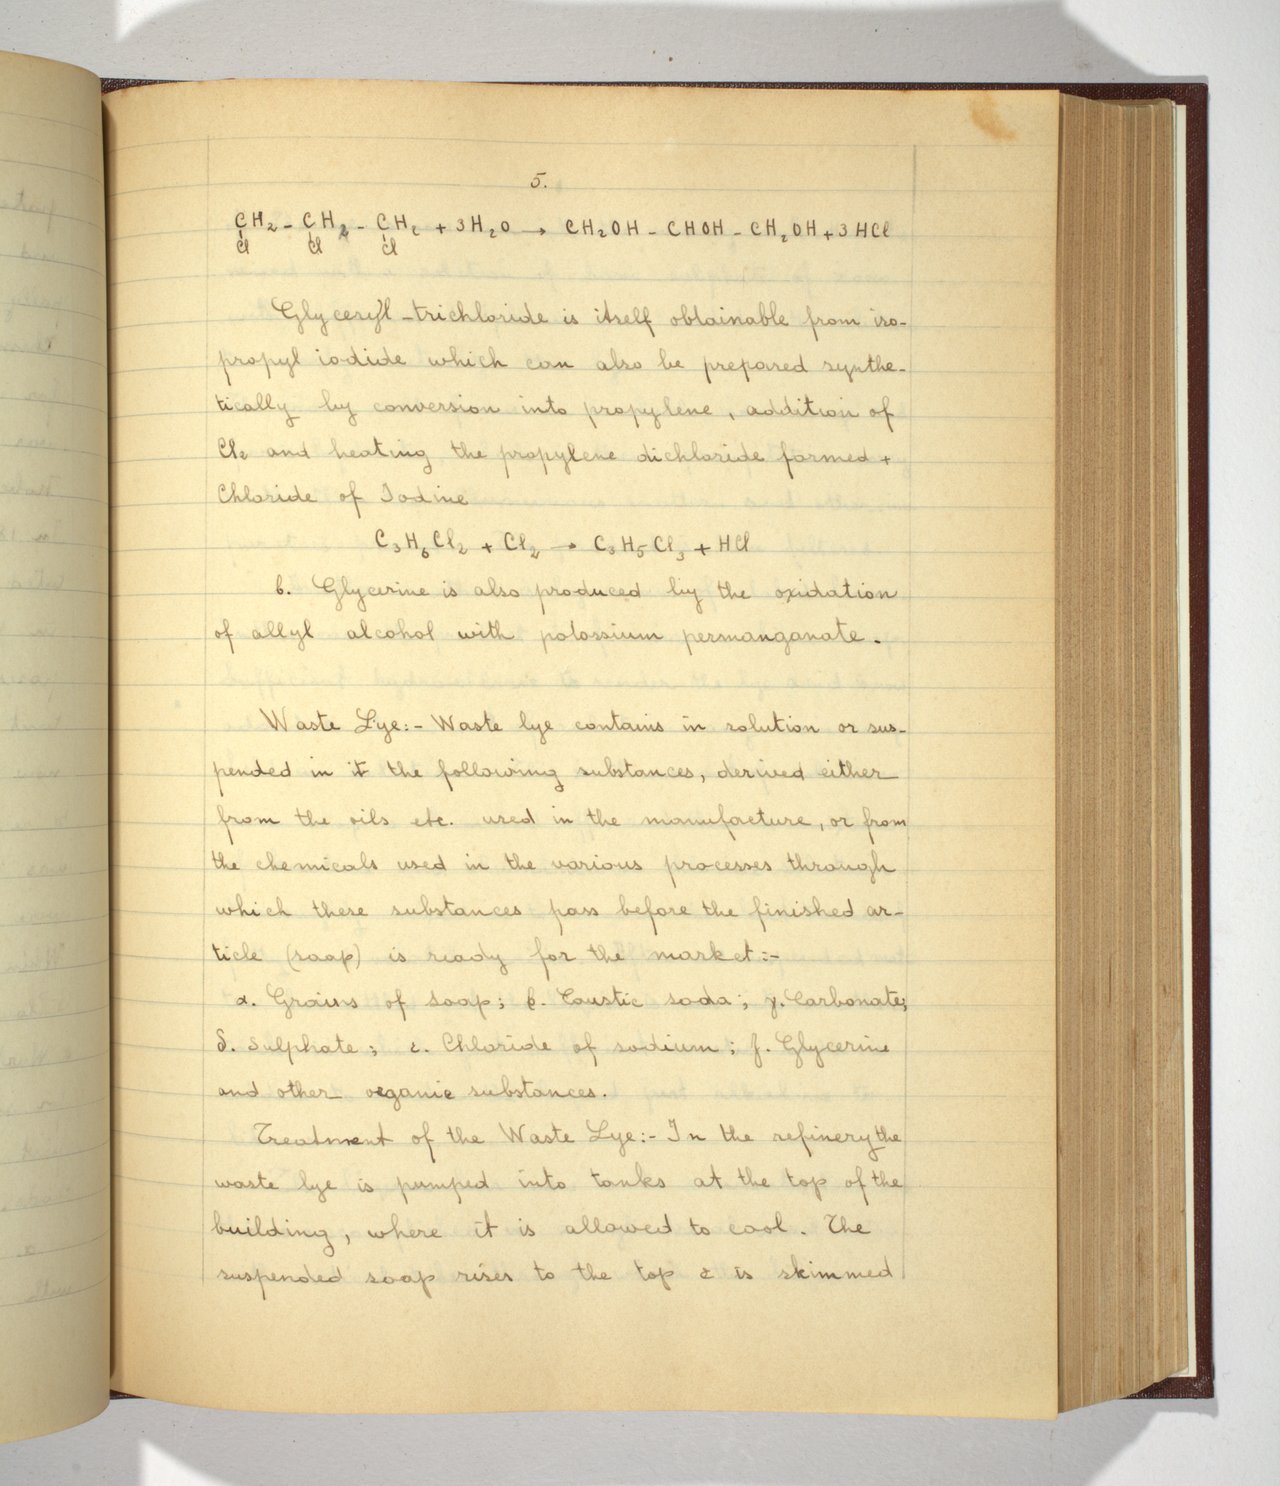 5.
CH2 - CH2 - CH2 + 3H2O → CH2OH - CHOH - CH2OH + 3HCl
Cl Cl Cl
Glyceryl-trichloride is itself obtainable from iso-
propyl iodide which can also be prepared synthe-
tically by conversion into propylene, addition of
Cl2 and heating the propylene dichloride formed +
Chloride of Iodine
C3H6Cl2 + Cl2 → C3H5Cl3 + HCl
6. Glycerine is also produced by the oxidation
of allyl alcohol with potassium permanganate.
Waste Lye:- Waste lye contains in solution or sus-
pended in it the following substances, derived either
from the oils etc. used in the manufacture, or from
the chemicals used in the various processes through
which these substances pass before the finished ar-
ticle (soap) is ready for the market:-
α. Grains of soap; β. Caustic soda; γ. Carbonate;
δ. Sulphate; ε. Chloride of sodium; f. Glycerine
and other organic substances.
Treatment of the Waste Lye:- In the refinery the
waste lye is pumped into tanks at the top of the
building, where it is allowed to cool. The
suspended soap rises to the top & is skimmed